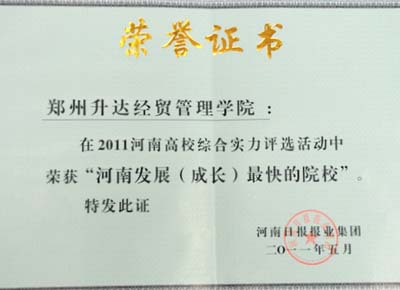 荣誉证书
郑州升达经贸管理学院：
在2011河南高校综合实力评选活动中
荣获“河南发展（成长）最快的院校”。
特发此证
河南日报报业集团
二〇一一年五月